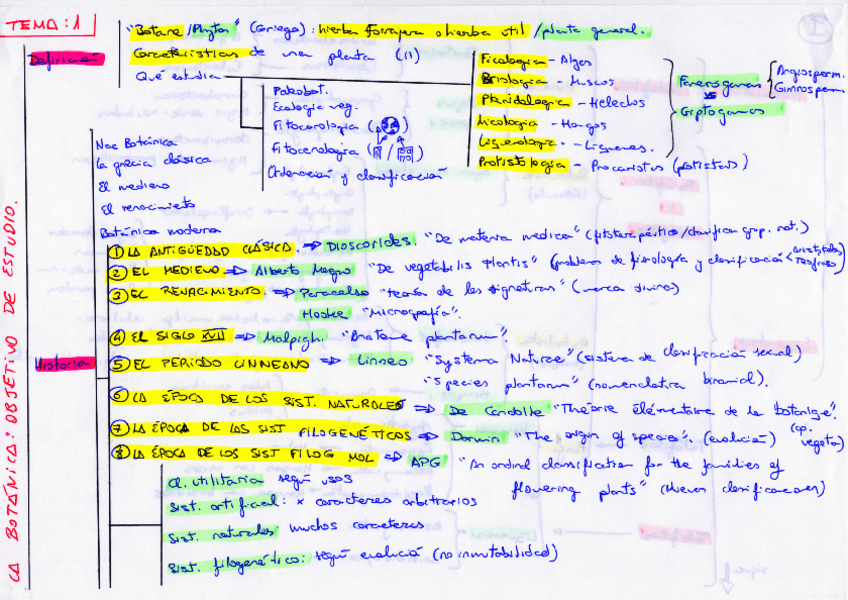 TEMA: 1
LA BOTÁNICA: OBJETIVO DE ESTUDIO.
Definición
"Botane/Phyton" (Griego): hierba forrajera o hierba útil/planta general.
Características de una planta (11)
Qué estudia
Paleobot.
Ecología veg.
Fitocorología
Fitocenología
Ordenación y clasificación
Ficología - Algas
Briología - Musgos
Pteridología - Helechos
Micología - Hongos
Liquenología - Líquenes.
Protistología - Procariotas (protistas)
Fanerógamas
vs
Criptógamas
Angiosperm.
Gimnosperm.
Historia
Nace Botánica
La grecia clásica
El medievo
El renacimiento
Botánica moderna
① LA ANTIGÜEDAD CLÁSICA. ⇒ Dioscorides. "De materia medica" (fitoterapéutico/clasifica grup. nat.)
② EL MEDIEVO ⇒ Alberto Magno "De vegetabilis Plantis" (problemas de fisiología y clasificación < aristóteles teofrasto)
③ EL RENACIMIENTO. ⇒ Paracelso "teoría de las signaturas" (marca divina)
Hooke "Micrografía".
④ EL SIGLO XVII ⇒ Malpighi. "Anatome plantarum".
⑤ EL PERIODO LINNEANO ⇒ Linneo "Systema Naturae" (sistema de clasificación sexual)
"Species plantarum" (nomenclatura binomial).
⑥ LA ÉPOCA DE LOS SIST. NATURALES ⇒ De Candolle "Théorie élémentaire de la botanique".
⑦ LA ÉPOCA DE LOS SIST FILOGENÉTICOS ⇒ Darwin "The origin of species". (evolución) (cp. vegeta)
⑧ LA ÉPOCA DE LOS SIST FILOG MOL ⇒ APG "An ordinal classification for the families of
flowering plants" (Nuevas clasificaciones)
Cl. utilitaria según usos
Sist. artificial: x caracteres arbitrarios
Sist. naturales muchos caracteres
Sist. filogenético: según evolución (no inmutabilidad)